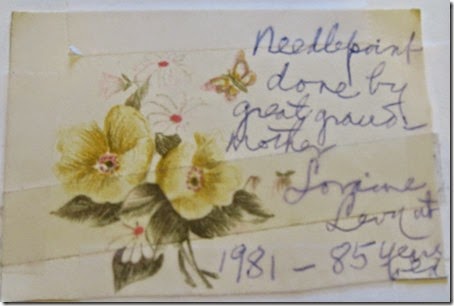 Needlepoint
done by
great grand-
Mother
Lorraine
1981 – 85 years